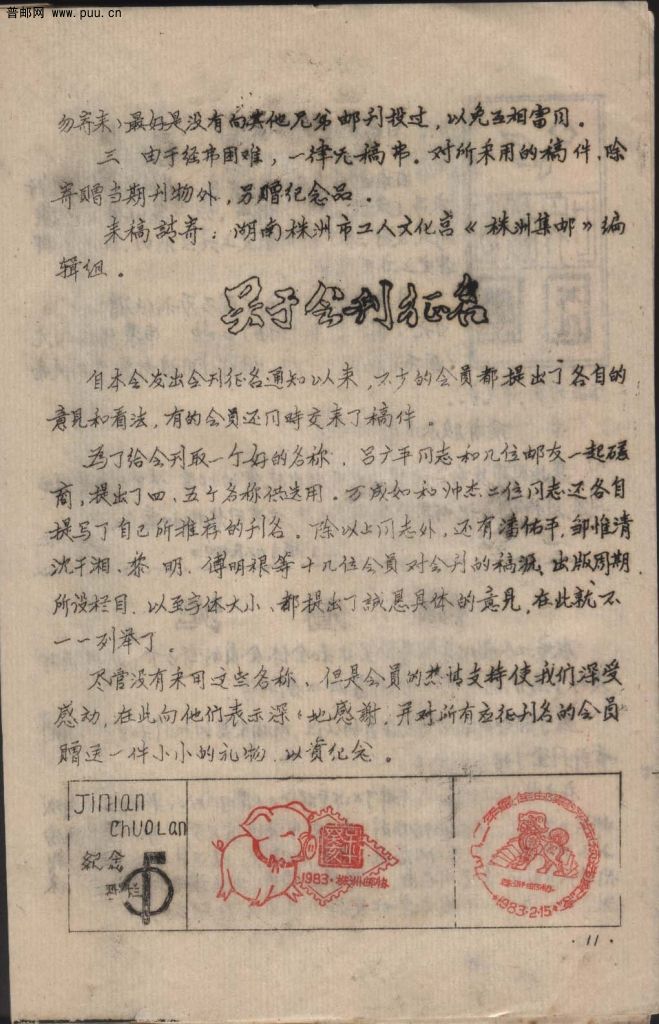 普邮网 www.puu.cn
勿寄来）最好是没有向其他兄弟邮刊投过，以免互相雷同。
三 由于经弗困难，一律无稿弗。对所采用的稿件，除
寄赠当期刊物外，另赠纪念品。
来稿請寄：湖南株洲市工人文化宫《株洲集邮》编
辑组。
关于会刊征名
自本会发出会刊征名通知以来，不少的会员都提出了各自的
意见和看法，有的会员还同時交来了稿件。
为了给会刊取一个好的名称，吕广平同志和几位邮友一起磋
商，提出了四、五个名称供选用。万成如和帅杰二位同志还各自
提写了自己所推荐的刊名。除以上同志外，还有潘佑平，邹惟清
沈干湘、黎明、傅明根等十几位会员对会刊的稿源、出版周期
所设栏目，以至字体大小、都提出了誠恳具体的意见，在此就不
一一列举了。
尽管没有采用这些名称、但是会员的热诚支持使我们深受
感动，在此向他们表示深々地感謝，并对所有应征刊名的会员
赠送一件小小的礼物，以資纪念。
JiNiAN
CHUOLAN
纪念
戳栏
1983·株洲邮协
株洲邮协
·1983·2·15·
·11·